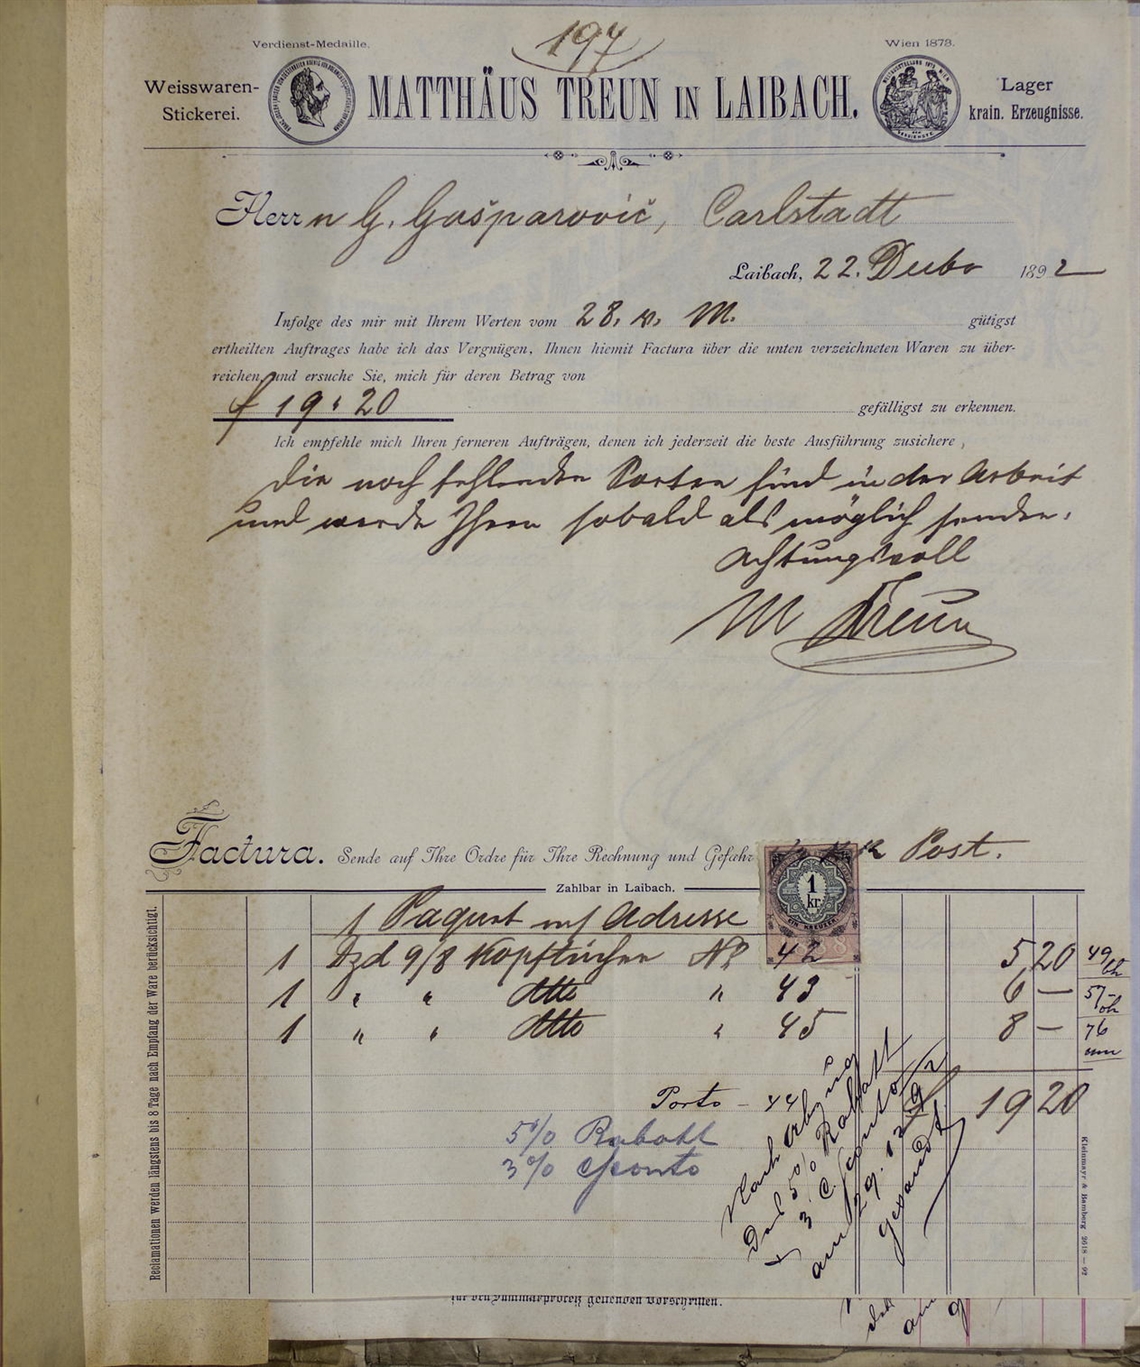 197
Verdienst-Medaille.
Wien 1873.
Weisswaren-
Stickerei.
MATTHÄUS TREUN IN LAIBACH.
Lager
krain. Erzeugnisse.
Herrn G. Gašparović, Carlstadt
Laibach, 22. Decbr 1892
Infolge des mir mit Ihrem Werten vom 28. v. M. gütigst
ertheilten Auftrages habe ich das Vergnügen, Ihnen hiemit Factura über die unten verzeichneten Waren zu über-
reichen, und ersuche Sie, mich für deren Betrag von
f 19.20 gefälligst zu erkennen.
Ich empfehle mich Ihren ferneren Aufträgen, denen ich jederzeit die beste Ausführung zusichere,
die noch fehlenden Sorten sind in der Arbeit
und werde Ihnen sobald als möglich senden.
Achtungsvoll
M Treun
Factura. Sende auf Ihre Ordre für Ihre Rechnung und Gefahr Post.
Zahlbar in Laibach.
1 kr.
EIN KREUZER
1 Paquet auf Adresse
1 Dzd 9/8 Kopftücher No 42 5 20
1 " " dtto " 43 6 —
1 " " dtto " 45 8 —
Porto - 44 19 20
5% Rabatt
3% Sconto
Nach Abzug
5% Rabatt
3
am 29.
gesandt
Reclamationen werden längstens bis 8 Tage nach Empfang der Ware berücksichtigt.
Kleinmayr & Bamberg 2618 — 92
für den Summarproceß geltenden Vorschriften.